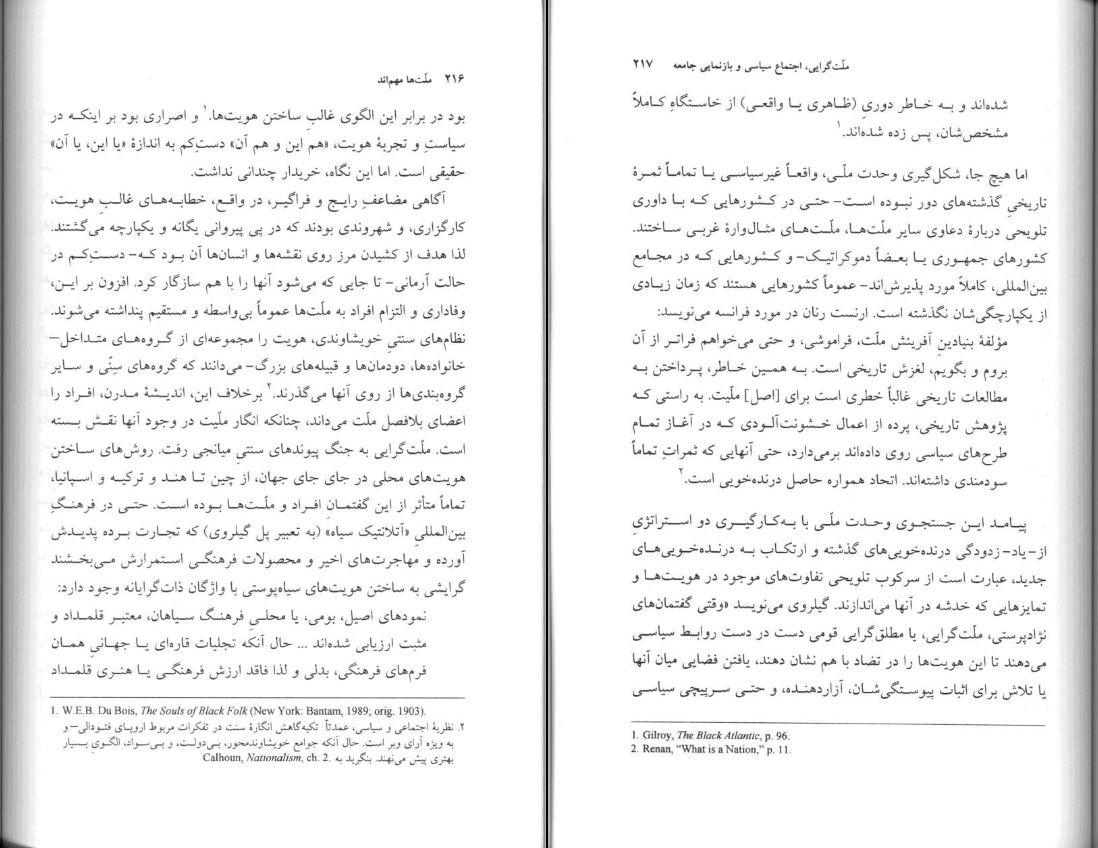 ۲۱۶ ملّت‌ها مهم‌اند
بود در برابر این الگوی غالبِ ساختن هویت‌ها.۱ و اصراری بود بر اینکه در
سیاست و تجربهٔ هویت، «هم این و هم آن» دست‌کم به اندازهٔ «یا این، یا آن»
حقیقی است. اما این نگاه، خریدار چندانی نداشت.
آگاهی مضاعفِ رایج و فراگیر، در واقع، خطابه‌های غالبِ هویت،
کارگزاری، و شهروندی بودند که در پی پیروانی یگانه و یکپارچه می‌گشتند.
لذا هدف از کشیدن مرز روی نقشه‌ها و انسان‌ها آن بود که- دستِ‌کم در
حالت آرمانی- تا جایی که می‌شود آنها را با هم سازگار کرد. افزون بر این،
وفاداری و التزام افراد به ملّت‌ها عموماً بی‌واسطه و مستقیم پنداشته می‌شوند.
نظام‌های سنتیِ خویشاوندی، هویت را مجموعه‌ای از گروه‌های متداخل-
خانواده‌ها، دودمان‌ها و قبیله‌های بزرگ- می‌دانند که گروه‌های سِنّی و سایر
گروه‌بندی‌ها از روی آنها می‌گذرند.۲ برخلاف این، اندیشهٔ مدرن، افراد را
اعضای بلافصل ملّت می‌داند، چنانکه انگار ملیت در وجود آنها نقش بسته
است. ملّت‌گرایی به جنگ پیوندهای سنتیِ میانجی رفت. روش‌های ساختن
هویت‌های محلی در جای جای جهان، از چین تا هند و ترکیه و اسپانیا،
تماماً متأثر از این گفتمانِ افراد و ملّت‌ها بوده است. حتی در فرهنگِ
بین‌المللیِ «آتلانتیک سیاه» (به تعبیر پل گیلروی) که تجارت برده پدیدش
آورده و مهاجرت‌های اخیر و محصولات فرهنگی استمرارش می‌بخشند
گرایشی به ساختن هویت‌های سیاه‌پوستی با واژگان ذات‌گرایانه وجود دارد:
نمودهای اصیل، بومی، یا محلیِ فرهنگ سیاهان، معتبر قلمداد و
مثبت ارزیابی شده‌اند ... حال آنکه تجلیات قاره‌ای یا جهانیِ همان
فرم‌های فرهنگی، بدلی و لذا فاقد ارزش فرهنگی یا هنری قلمداد
1. W.E.B. Du Bois, The Souls of Black Folk (New York: Bantam, 1989; orig. 1903).
۲. نظریهٔ اجتماعی و سیاسی، عمدتاً تکیه‌گاهش انگارهٔ سنت در تفکرات مربوط اروپای فئودالی- و
به ویژه آرای وبر است. حال آنکه جوامع خویشاوندمحور، بی‌دولت، و بی‌سواد، الگوی بسیار
بهتری پیش می‌نهند. بنگرید به Calhoun, Nationalism, ch. 2.
ملّت‌گرایی، اجتماع سیاسی و بازنمایی جامعه ۲۱۷
شده‌اند و به خاطر دوریِ (ظاهری یا واقعی) از خاستگاهِ کاملاً
مشخص‌شان، پس زده شده‌اند.۱
اما هیچ جا، شکل‌گیری وحدت ملّی، واقعاً غیرسیاسی یا تماماً ثمرهٔ
تاریخیِ گذشته‌های دور نبوده است- حتی در کشورهایی که با داوری
تلویحی دربارهٔ دعاوی سایر ملّت‌ها، ملّت‌های مثال‌وارهٔ غربی ساختند.
کشورهای جمهوری یا بعضاً دموکراتیک- و کشورهایی که در مجامع
بین‌المللی، کاملاً مورد پذیرش‌اند- عموماً کشورهایی هستند که زمان زیادی
از یکپارچگی‌شان نگذشته است. ارنست رنان در مورد فرانسه می‌نویسد:
مؤلفهٔ بنیادینِ آفرینش ملّت، فراموشی، و حتی می‌خواهم فراتر از آن
بروم و بگویم، لغزش تاریخی است. به همین خاطر، پرداختن به
مطالعات تاریخی غالباً خطری است برای [اصل] ملّیت. به راستی که
پژوهش تاریخی، پرده از اعمال خشونت‌آلودی که در آغاز تمام
طرح‌های سیاسی روی داده‌اند برمی‌دارد، حتی آنهایی که ثمراتِ تماماً
سودمندی داشته‌اند. اتحاد همواره حاصل درنده‌خویی است.۲
پیامد این جستجوی وحدت ملّی با به‌کارگیری دو استراتژیِ
از-یاد-زدودگی درنده‌خویی‌های گذشته و ارتکاب به درنده‌خویی‌های
جدید، عبارت است از سرکوب تلویحی تفاوت‌های موجود در هویت‌ها و
تمایزهایی که خدشه در آنها می‌اندازند. گیلروی می‌نویسد «وقتی گفتمان‌های
نژادپرستی، ملّت‌گرایی، یا مطلق‌گرایی قومی دست در دست روابط سیاسی
می‌دهند تا این هویت‌ها را در تضاد با هم نشان دهند، یافتن فضایی میان آنها
یا تلاش برای اثبات پیوستگی‌شان، آزاردهنده، و حتی سرپیچی سیاسی
1. Gilroy, The Black Atlantic, p. 96.
2. Renan, “What is a Nation,” p. 11.